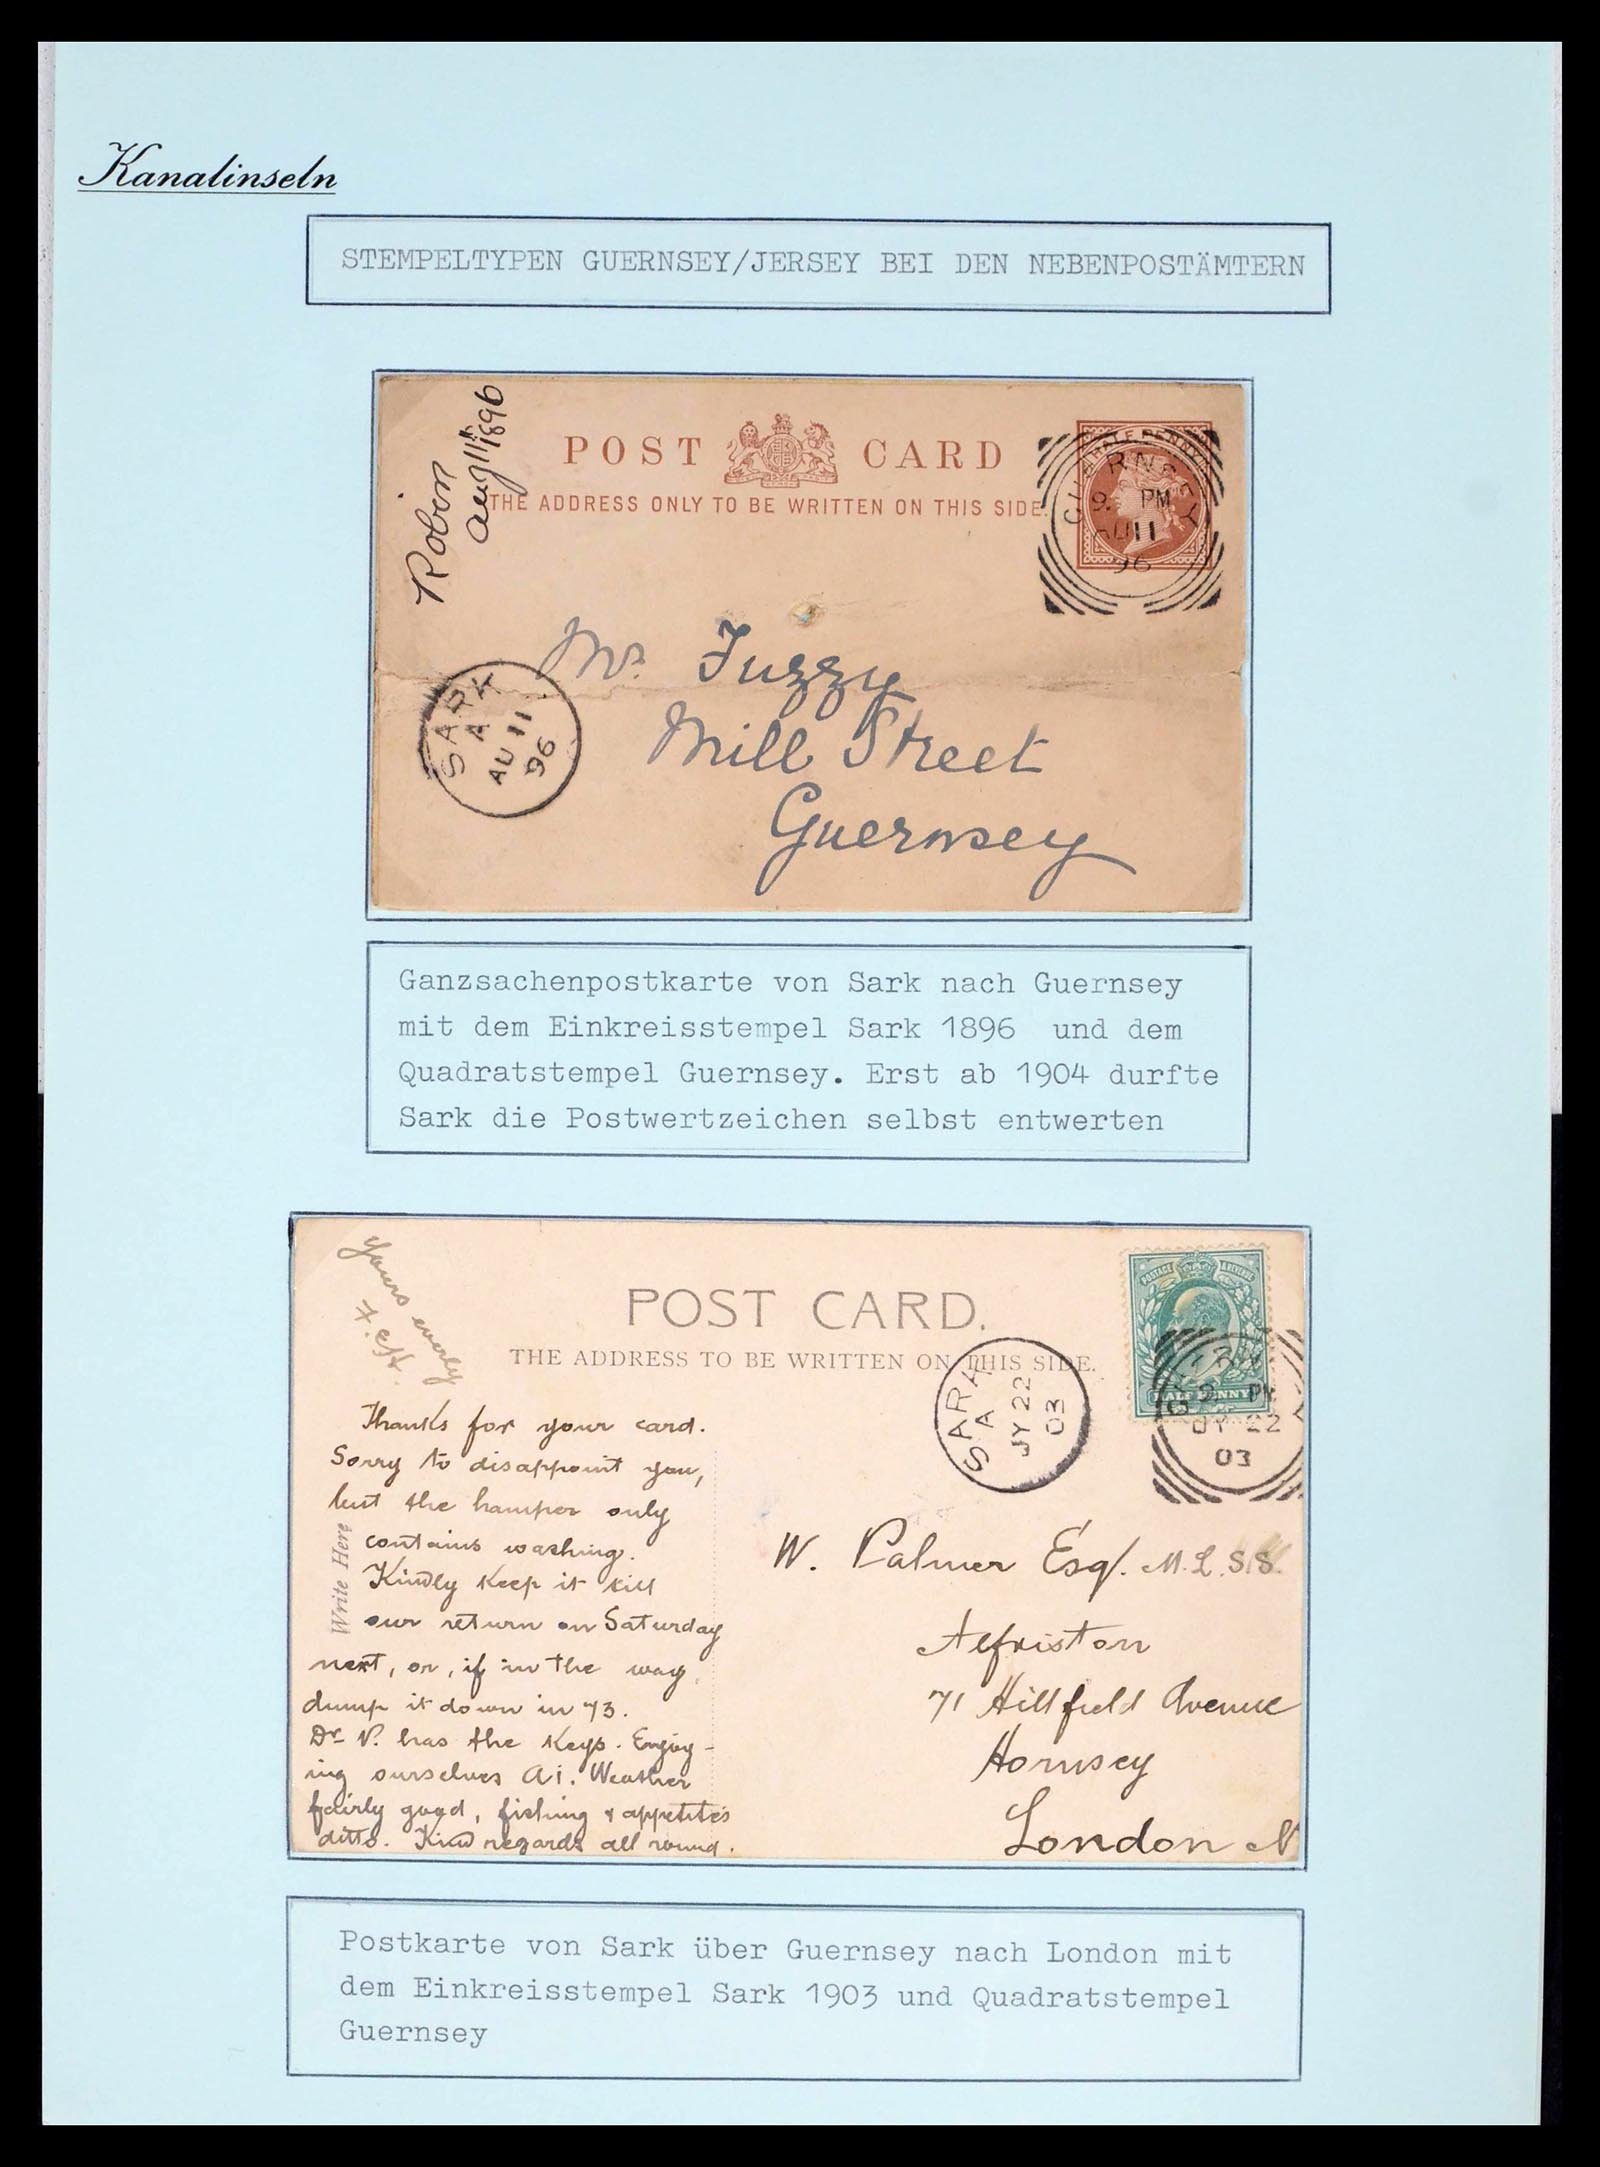 Kanalinseln
STEMPELTYPEN GUERNSEY/JERSEY BEI DEN NEBENPOSTÄMTERN
Robin
Aug 11th 1896
POST CARD
THE ADDRESS ONLY TO BE WRITTEN ON THIS SIDE.
HALFPENNY
GUERNSEY
9. PM
AU 11
96
SARK
A
AU 11
96
Mr. Fuzzy
Mill Street
Guernsey
Ganzsachenpostkarte von Sark nach Guernsey
mit dem Einkreisstempel Sark 1896 und dem
Quadratstempel Guernsey. Erst ab 1904 durfte
Sark die Postwertzeichen selbst entwerten
Yours everly
POST CARD.
THE ADDRESS TO BE WRITTEN ON THIS SIDE.
POSTAGE & REVENUE
HALF PENNY
PM
JY 22
03
SARK
A
JY 22
03
Thanks for your card.
Sorry to disappoint you,
but the hamper only
contains washing.
Kindly keep it till
our return on Saturday
next, or, if in the way
dump it down in 73.
Dr. P. has the keys. Enjoy-
ing ourselves A1. Weather
fairly good, fishing & appetites
ditto. Kind regards all round.
Write Here
W. Palmer Esq. M.L.S.S.
Alfriston
71 Hillfield Avenue
Hornsey
London N
Postkarte von Sark über Guernsey nach London mit
dem Einkreisstempel Sark 1903 und Quadratstempel
Guernsey